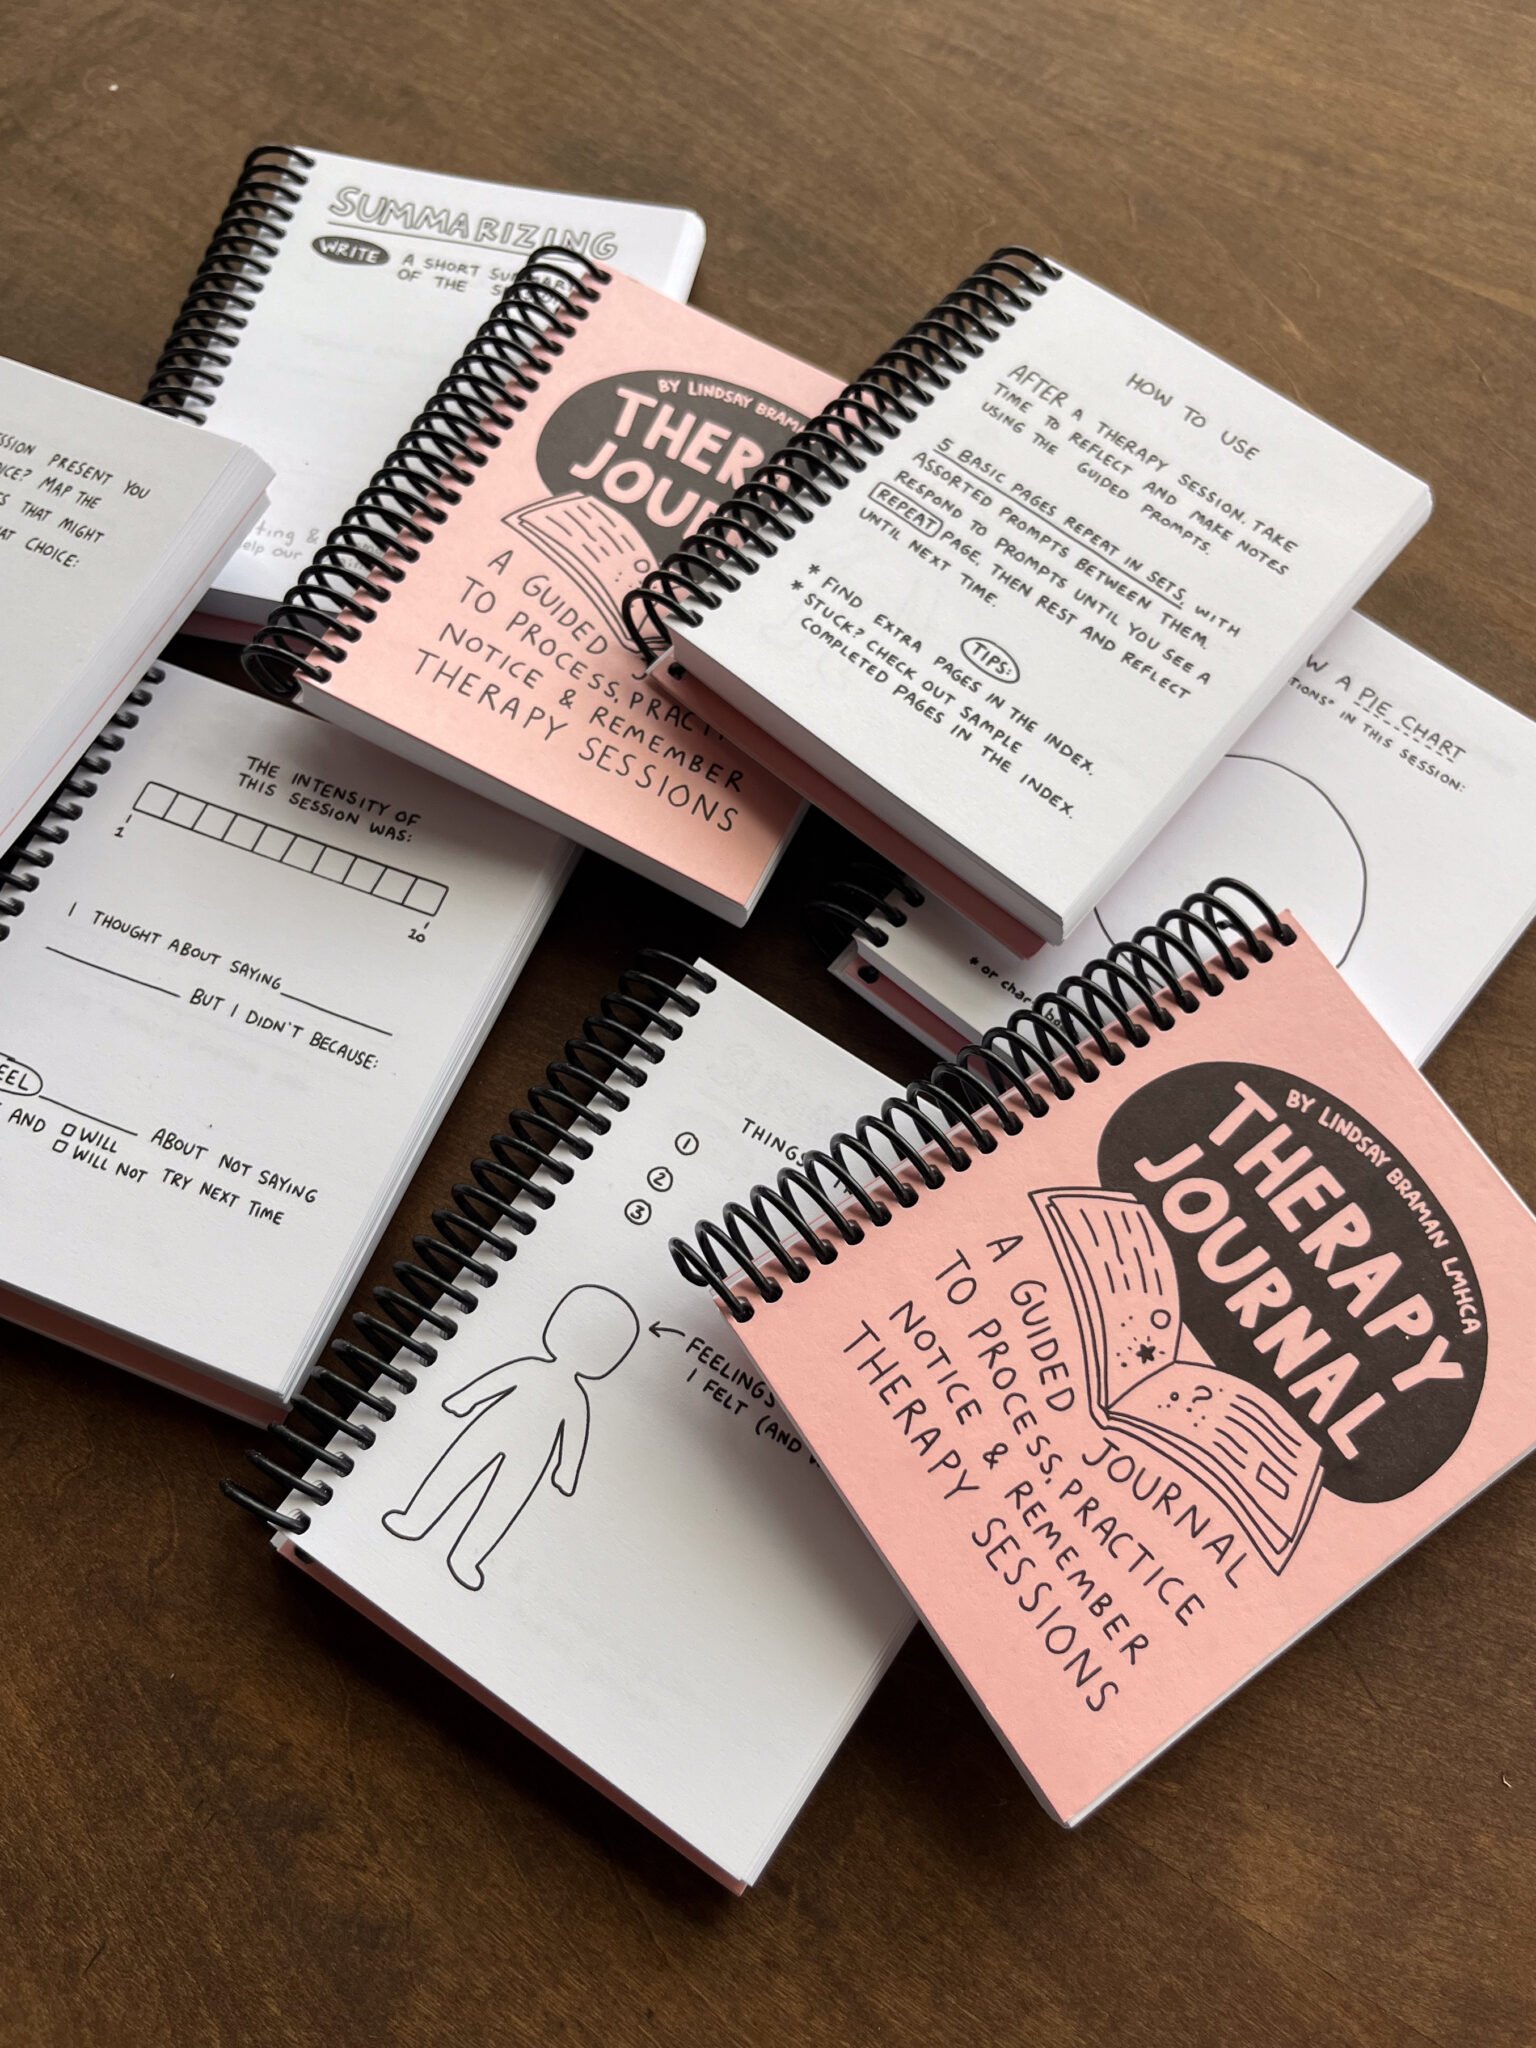 SUMMARIZING
WRITE A SHORT SUMMARY
OF THE
BY LINDSAY
JOUR
A GUIDED
TO PROCESS,
NOTICE & REMEMBER
THERAPY SESSIONS
HOW TO USE
AFTER A THERAPY SESSION, TAKE
TIME TO REFLECT AND MAKE NOTES
USING THE GUIDED PROMPTS.
5 BASIC PAGES REPEAT IN SETS, WITH
ASSORTED PROMPTS BETWEEN THEM.
RESPOND TO PROMPTS UNTIL YOU SEE A
REPEAT PAGE, THEN REST AND REFLECT
UNTIL NEXT TIME.
TIPS:
* FIND EXTRA PAGES IN THE INDEX.
* STUCK? CHECK OUT SAMPLE
COMPLETED PAGES IN THE INDEX.
SSION PRESENT YOU
OICE? MAP THE
TS THAT MIGHT
AT CHOICE:
ting &
elp our
W A PIE CHART
TIONS" IN THIS SESSION:
* or char
THE INTENSITY OF
THIS SESSION WAS:
1
10
I THOUGHT ABOUT SAYING
BUT I DIDN'T BECAUSE:
EEL ABOUT NOT SAYING
AND □ WILL
□ WILL NOT TRY NEXT TIME
THINGS
1
2
3
FEELINGS
I FELT (AND
BY LINDSAY BRAMAN LMHCA
THERAPY
JOURNAL
?
A GUIDED JOURNAL
TO PROCESS, PRACTICE
NOTICE & REMEMBER
THERAPY SESSIONS